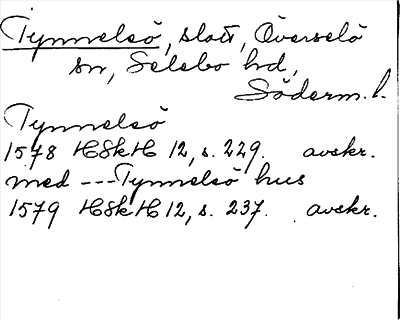 Tynnelsö, slott, Överselö
sn, Selebo hd,
Söderm. l.
Tynnelsö
1578 HSkH 12, s. 229. avskr.
med --- Tynnelsö hus
1579 HSkH 12, s. 237. avskr.